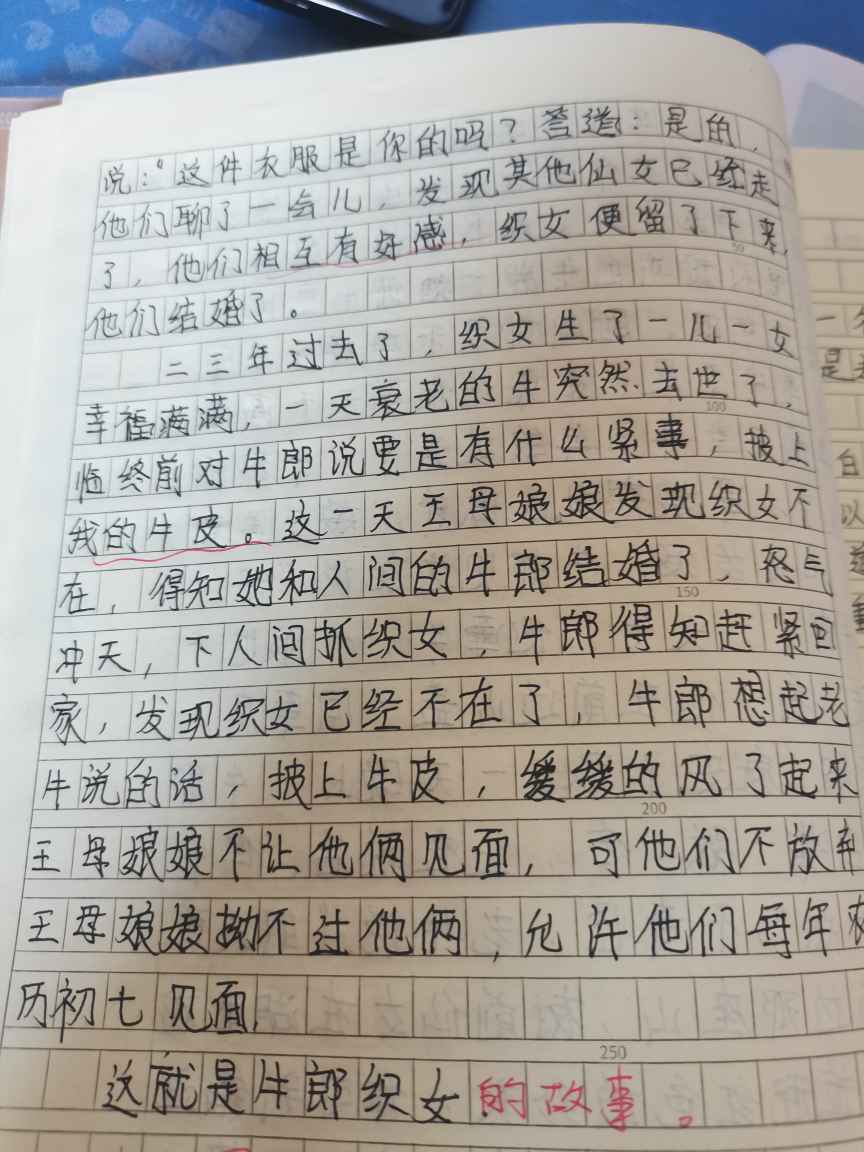 说:“这件衣服是你的吗?答道:是的,
他们聊了一会儿,发现其他仙女已经走
了,他们相互有好感,织女便留了下来,
50
他们结婚了。
二三年过去了,织女生了一儿一女
幸福满满,一天衰老的牛突然去世了,
100
临终前对牛郎说要是有什么紧事,披上
我的牛皮。这一天王母娘娘发现织女不
在,得知她和人间的牛郎结婚了,怒气
150
冲天,下人间抓织女,牛郎得知赶紧回
家,发现织女已经不在了,牛郎想起老
牛说的话,披上牛皮,缓缓的风了起来
200
王母娘娘不让他俩见面,可他们不放弃
王母娘娘拗不过他俩,允许他们每年农
历初七见面,
250
这就是牛郎织女的故事。